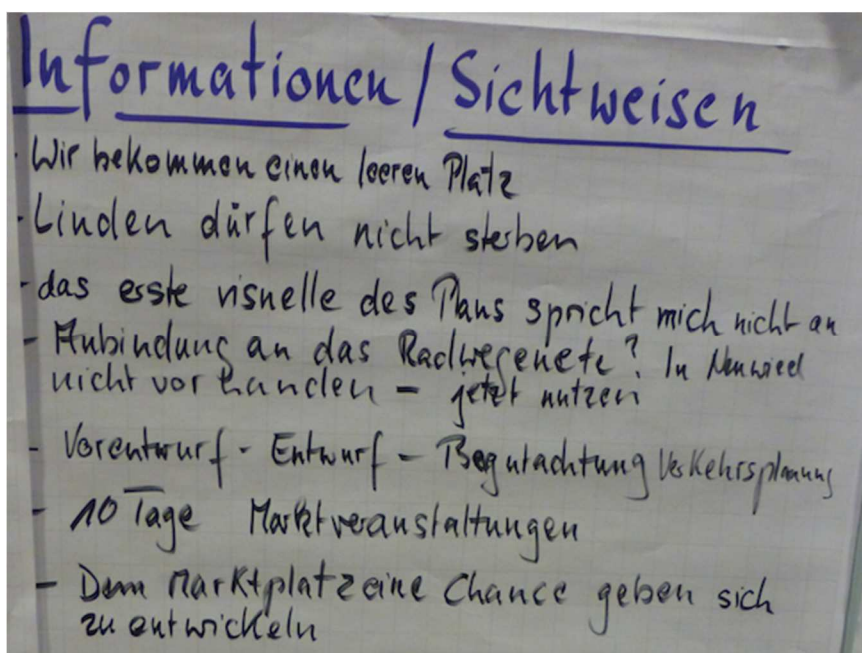 Informationen / Sichtweisen
· Wir bekommen einen leeren Platz
· Linden dürfen nicht sterben
- das erste visuelle des Plans spricht mich nicht an
- Anbindung an das Radwegenetz? In Neuwied
nicht vorhanden - jetzt nutzen
- Vorentwurf - Entwurf - Begutachtung Verkehrsplanung
- 10 Tage Marktveranstaltungen
- Dem Marktplatz eine Chance geben sich
zu entwickeln